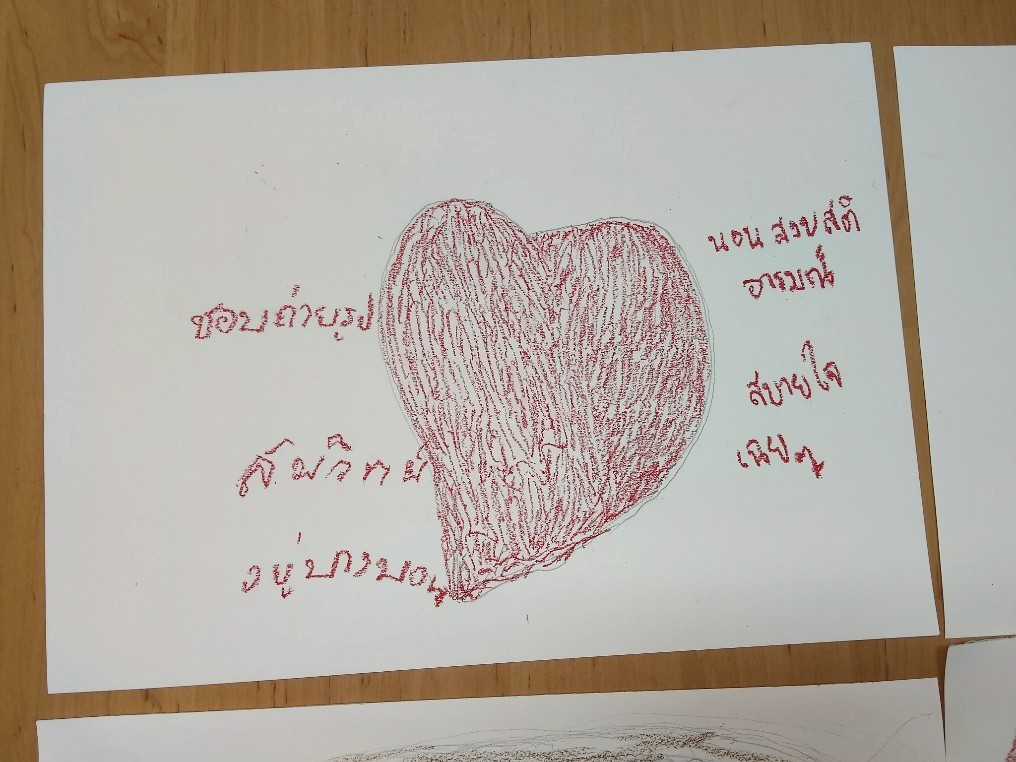 ชอบถ่ายรูป
สมวิทย์
อยู่บางบอน
นอน สงบสติ
อารมณ์
สบายใจ
เฉยๆ